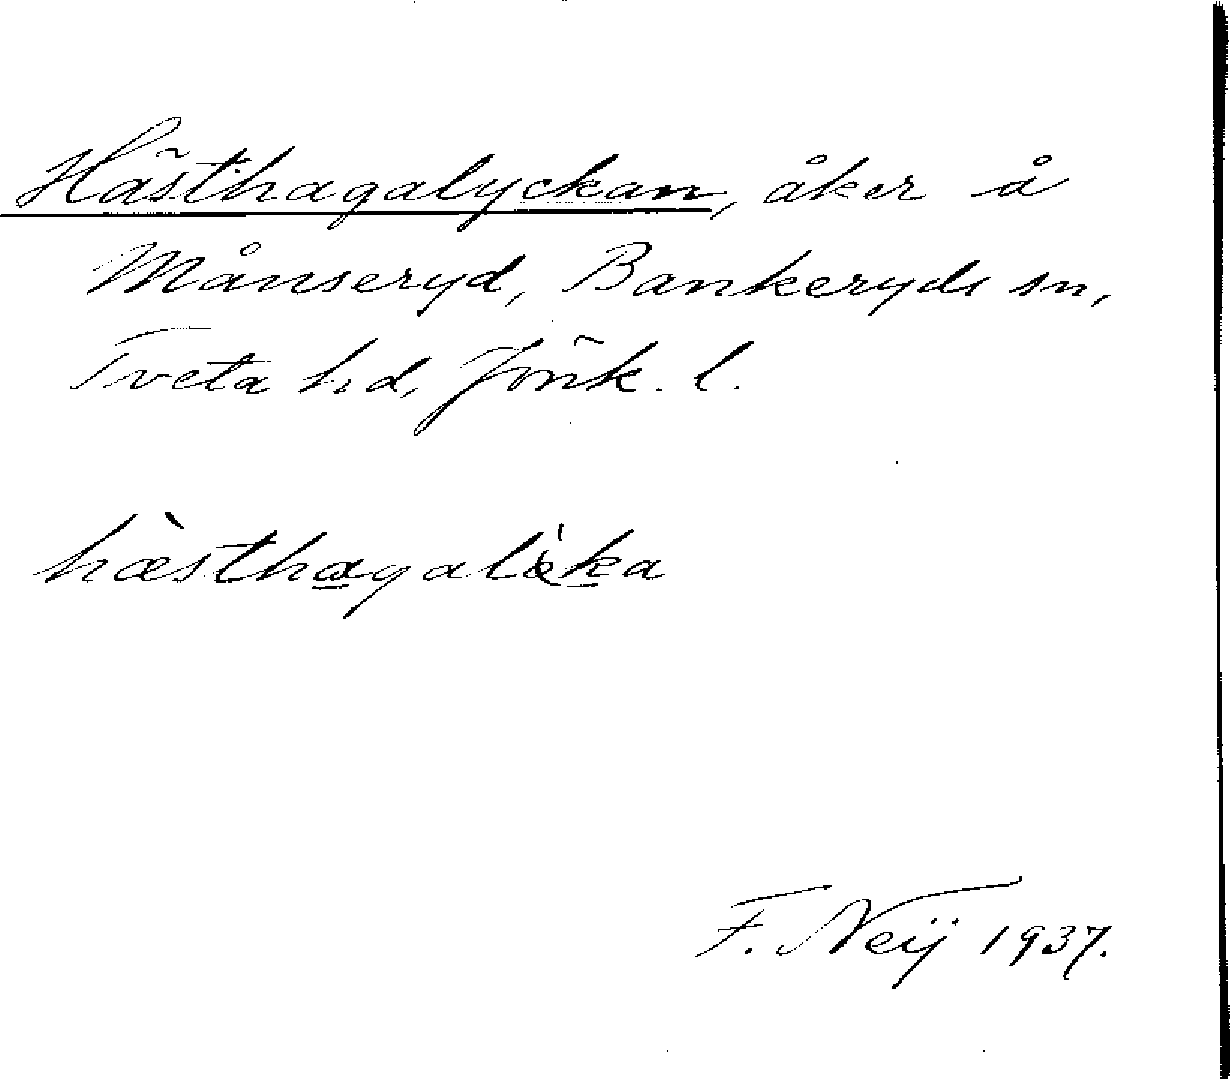 Hästhagalyckan, åker å
Månseryd, Bankeryds sn,
Tveta hd, Jönk. l.
hæ̀sthagalø̀ka
F. Neij 1937.